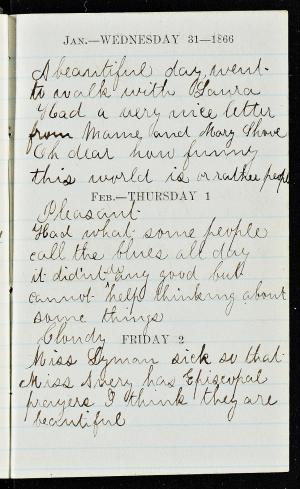 JAN.—WEDNESDAY 31—1866
A beautiful day, went
to walk with Laura
Had a very nice letter
from Mame, and Mary Shove
Oh dear how funny
this world is or rather people
FEB.—THURSDAY 1
Pleasant
Had what some people
call the blues all day
it didn't any good but
cannot help thinking about
some things
FRIDAY 2
Cloudy
Miss Lyman sick so that
Miss Avery has Episcopal
prayers I think they are
beautiful